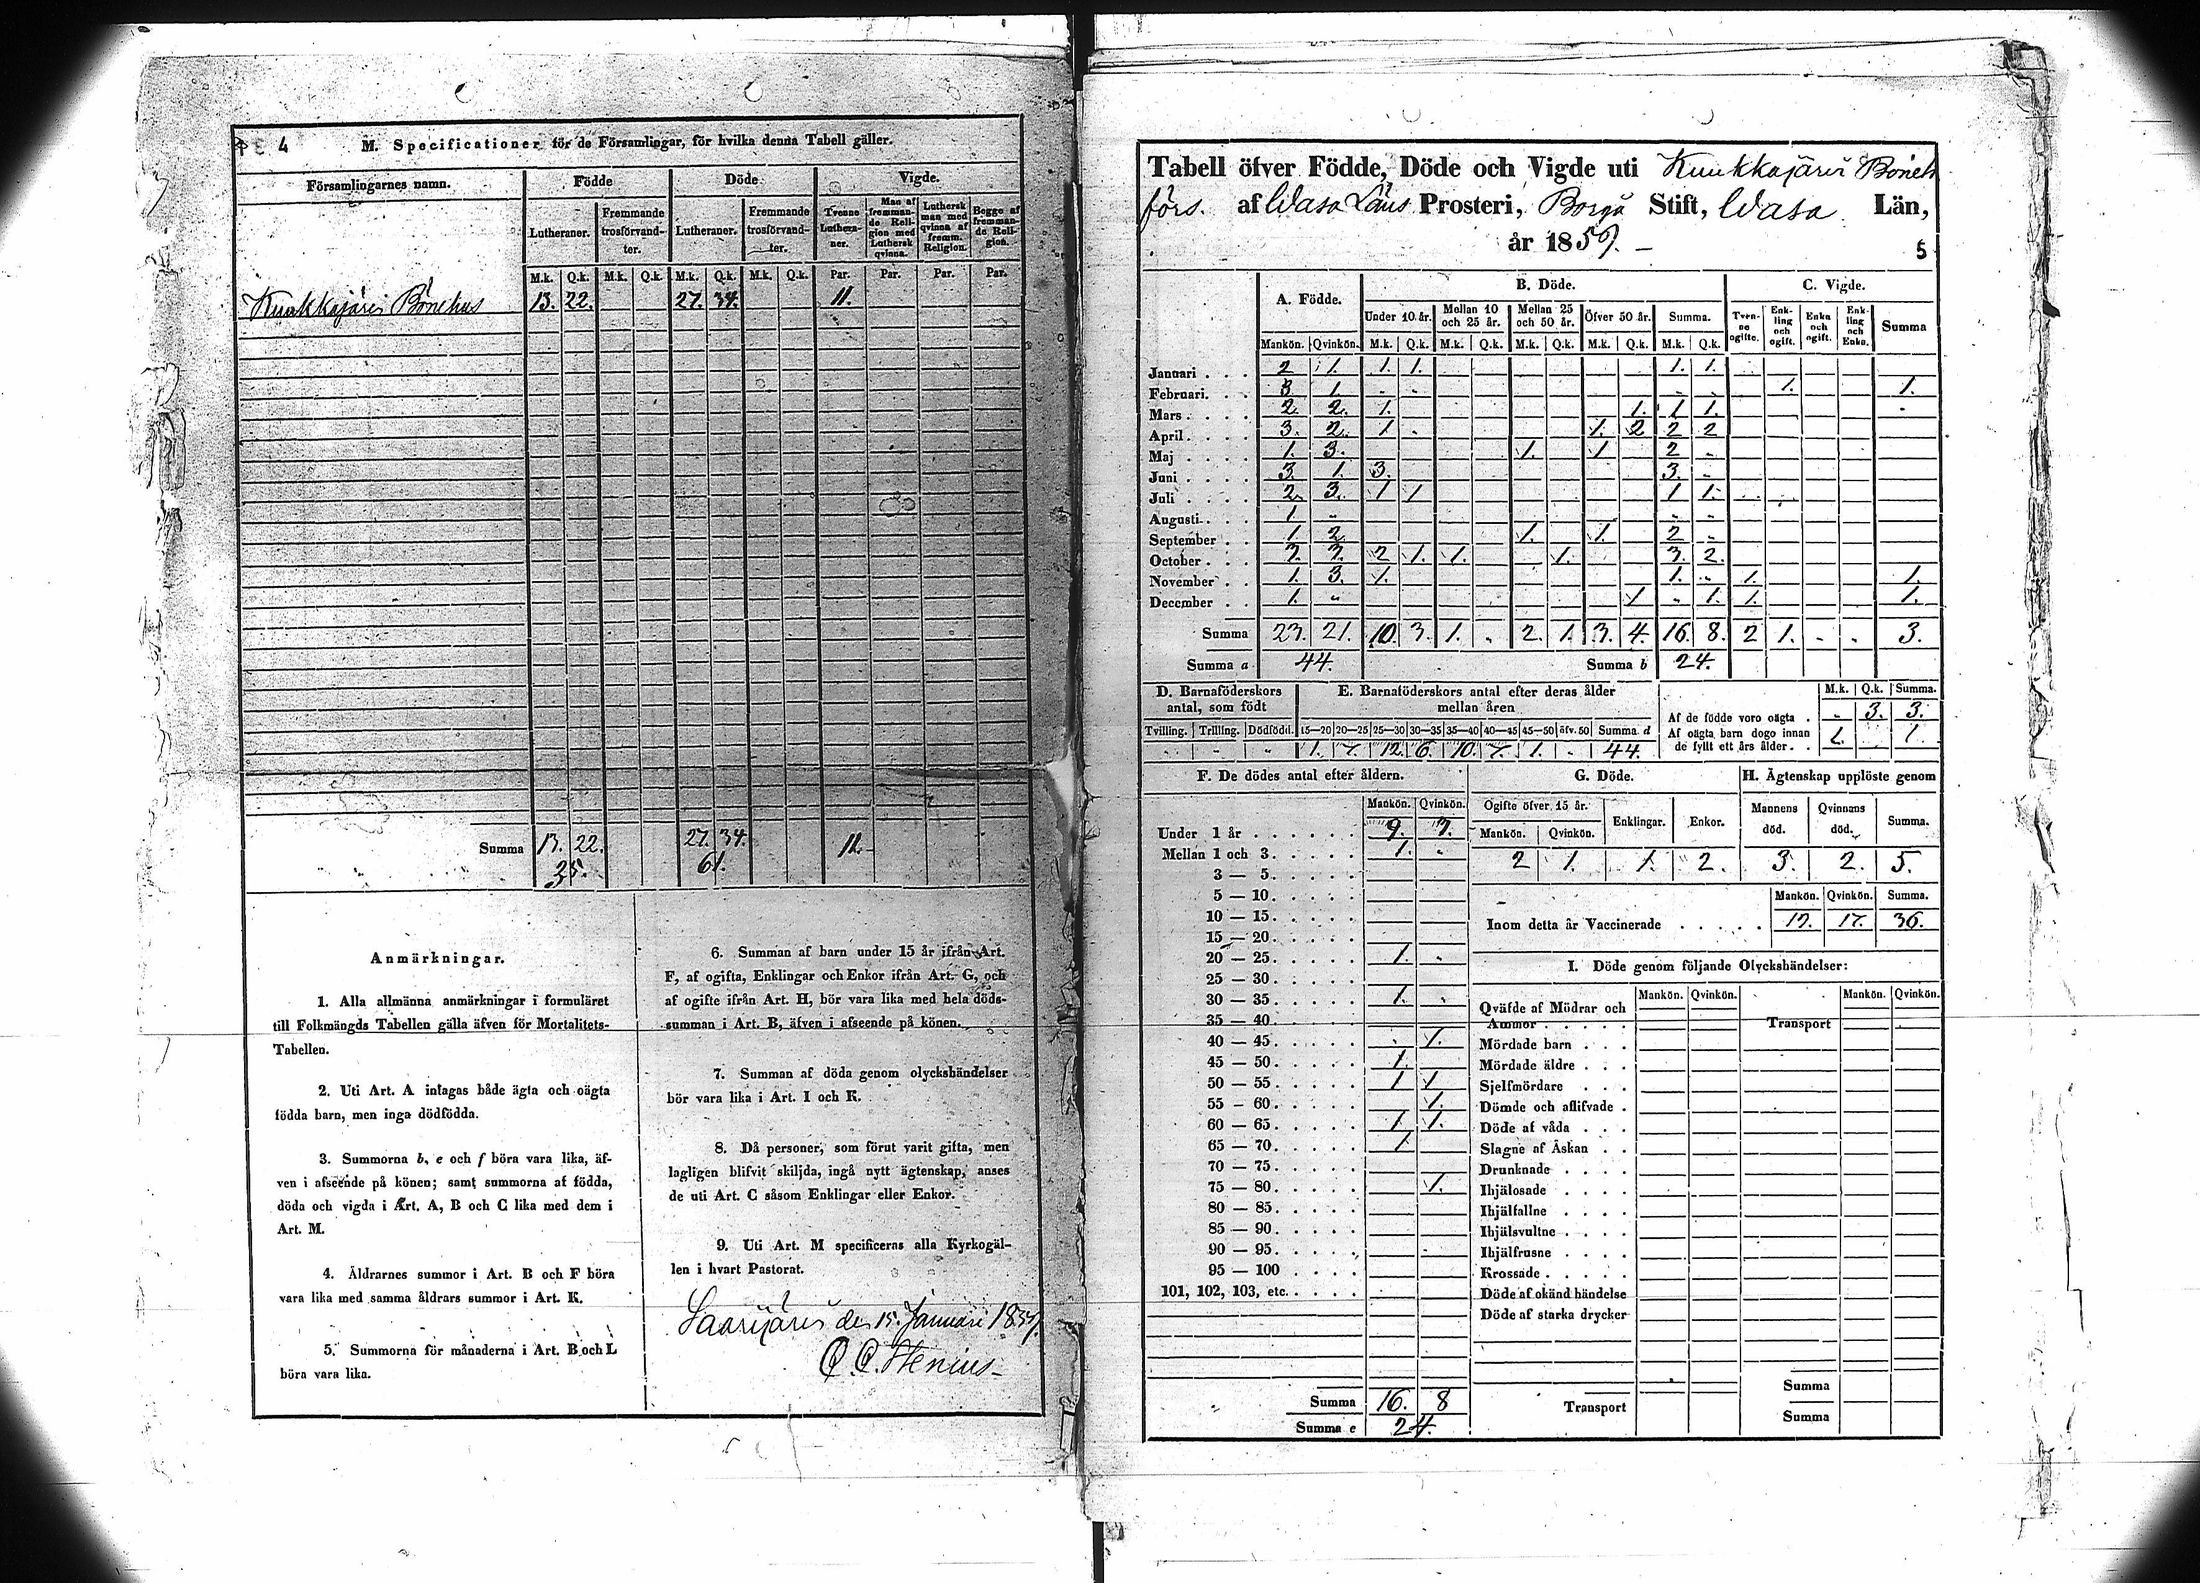 4 M. Specificationer för de Församlingar, för hvilka denna Tabell gäller.
Församlingarnes namn. Födde Döde Vigde.
Lutheraner. Fremmande trosförvandter. Lutheraner. Fremmande trosförvandter. Tvenne Lutheraner. Man af fremmande Religion med Luthersk qvinna. Luthersk man med qvinna af fremm. Religion. Begge af fremmande Religion.
M.k. Q.k. M.k. Q.k. M.k. Q.k. M.k. Q.k. Par. Par. Par. Par.
Kuukkajärvi Bönehus 13. 22. 27. 34. 11.
Summa 13. 22. 27. 34. 11.
35. 61.
Anmärkningar.
1. Alla allmänna anmärkningar i formuläret
till Folkmängds Tabellen gälla äfven för Mortalitets-
Tabellen.
2. Uti Art. A intagas både ägta och oägta
födda barn, men inga dödfödda.
3. Summorna b, e och f böra vara lika, äf-
ven i afseende på könen; samt summorna af födda,
döda och vigda i Art. A, B och C lika med dem i
Art. M.
4. Åldrarnes summor i Art. B och F böra
vara lika med samma åldrars summor i Art. K.
5. Summorna för månaderna i Art. B och L
böra vara lika.
6. Summan af barn under 15 år ifrån Art.
F, af ogifta, Enklingar och Enkor ifrån Art. G, och
af ogifte ifrån Art. H, bör vara lika med hela döds-
summan i Art. B, äfven i afseende på könen.
7. Summan af döda genom olyckshändelser
bör vara lika i Art. I och K.
8. Då personer, som förut varit gifta, men
lagligen blifvit skiljda, ingå nytt ägtenskap, anses
de uti Art. C såsom Enklingar eller Enkor.
9. Uti Art. M specificeras alla Kyrkogäl-
len i hvart Pastorat.
Saarijärvi den 15. Januari
Stenius
Tabell öfver Födde, Döde och Vigde uti Kuukkajärvi Böneh
förs. af Wasa Läns Prosteri, Borgå Stift, Wasa Län,
år 1859.
5
A. Födde. B. Döde. C. Vigde.
Under 10 år. Mellan 10 och 25 år. Mellan 25 och 50 år. Öfver 50 år. Summa. Tvenne ogifte. Enkling och ogift. Enka och ogift. Enkling och Enka. Summa
Mankön. Qvinkön. M.k. Q.k. M.k. Q.k. M.k. Q.k. M.k. Q.k. M.k. Q.k.
Januari . . . 2 1. 1. 1. 1. 1.
Februari. . . 3. 1. - - - - 1. 1.
Mars . . . . 2. 2. 1. 1. 1 1.
April . . . . 3. 2. 1 - 1. 2 2 2
Maj . . . . 1. 3. 1. 1 2 -
Juni . . . . 3. 1. 3. 3. -
Juli . . . . 2. 3. 1 1 1 1.
Augusti . . . 1 " - -
September . . 1 2 1. 1. 2 -
October . . . 3. 3. 2 1. 1. 1. 3. 2.
November . . 1. 3. 1. 1. - 1. 1.
December . . 1. " 1 - 1. 1. 1.
Summa 23. 21. 10. 3. 1. - 2. 1. 3. 4. 16. 8. 2 1. - - 3.
Summa a 44. Summa b 24.
D. Barnaföderskors antal, som födt E. Barnaföderskors antal efter deras ålder mellan åren
Tvilling. Trilling. Dödfödd. 15—20 20—25 25—30 30—35 35—40 40—45 45—50 öfv. 50 Summa d
- - " 1. 7. 12. 6. 10. 7. 1. - 44.
M.k. Q.k. Summa.
Af de födde voro oägta . - 3. 3.
Af oägta barn dogo innan
de fyllt ett års ålder . . 1. 1
F. De dödes antal efter åldern.
Mankön. Qvinkön.
Under 1 år . . . . . . 9. 3.
Mellan 1 och 3 . . . . . 1. -
3 — 5 . . . . .
5 — 10 . . . . .
10 — 15 . . . . .
15 — 20 . . . . .
20 — 25 . . . . . 1. -
25 — 30 . . . . .
30 — 35 . . . . . 1. -
35 — 40 . . . . .
40 — 45 . . . . . - 1.
45 — 50 . . . . . 1.
50 — 55 . . . . . 1 1
55 — 60 . . . . . 1.
60 — 65 . . . . . 1 1.
65 — 70 . . . . . 1
70 — 75 . . . . .
75 — 80 . . . . . 1.
80 — 85 . . . . .
85 — 90 . . . . .
90 — 95 . . . . .
95 — 100 . . . .
101, 102, 103, etc. . . . .
Summa 16. 8
Summa e 24.
G. Döde. H. Ägtenskap upplöste genom
Ogifte öfver 15 år. Enklingar. Enkor. Mannens död. Qvinnans död. Summa.
Mankön. Qvinkön.
2 1. 1. 2. 3. 2. 5.
Mankön. Qvinkön. Summa.
Inom detta år Vaccinerade . . . . . 17. 36.
I. Döde genom följande Olyckshändelser:
Mankön. Qvinkön. Mankön. Qvinkön.
Qväfde af Mödrar och
Ammor . . . . Transport
Mördade barn . . .
Mördade äldre . . .
Sjelfmördare . . .
Dömde och aflifvade .
Döde af våda . . .
Slagne af Åskan . .
Drunknade . . . .
Ihjälosade . . . .
Ihjälfallne . . . .
Ihjälsvultne . . . .
Ihjälfrusne . . . .
Krossade . . . . .
Döde af okänd händelse
Döde af starka drycker
Summa
Transport Summa